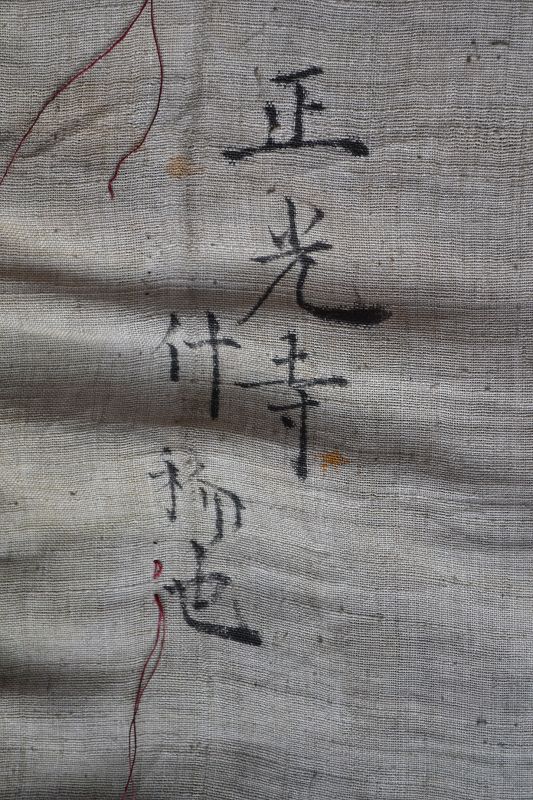 正光寺
什物也